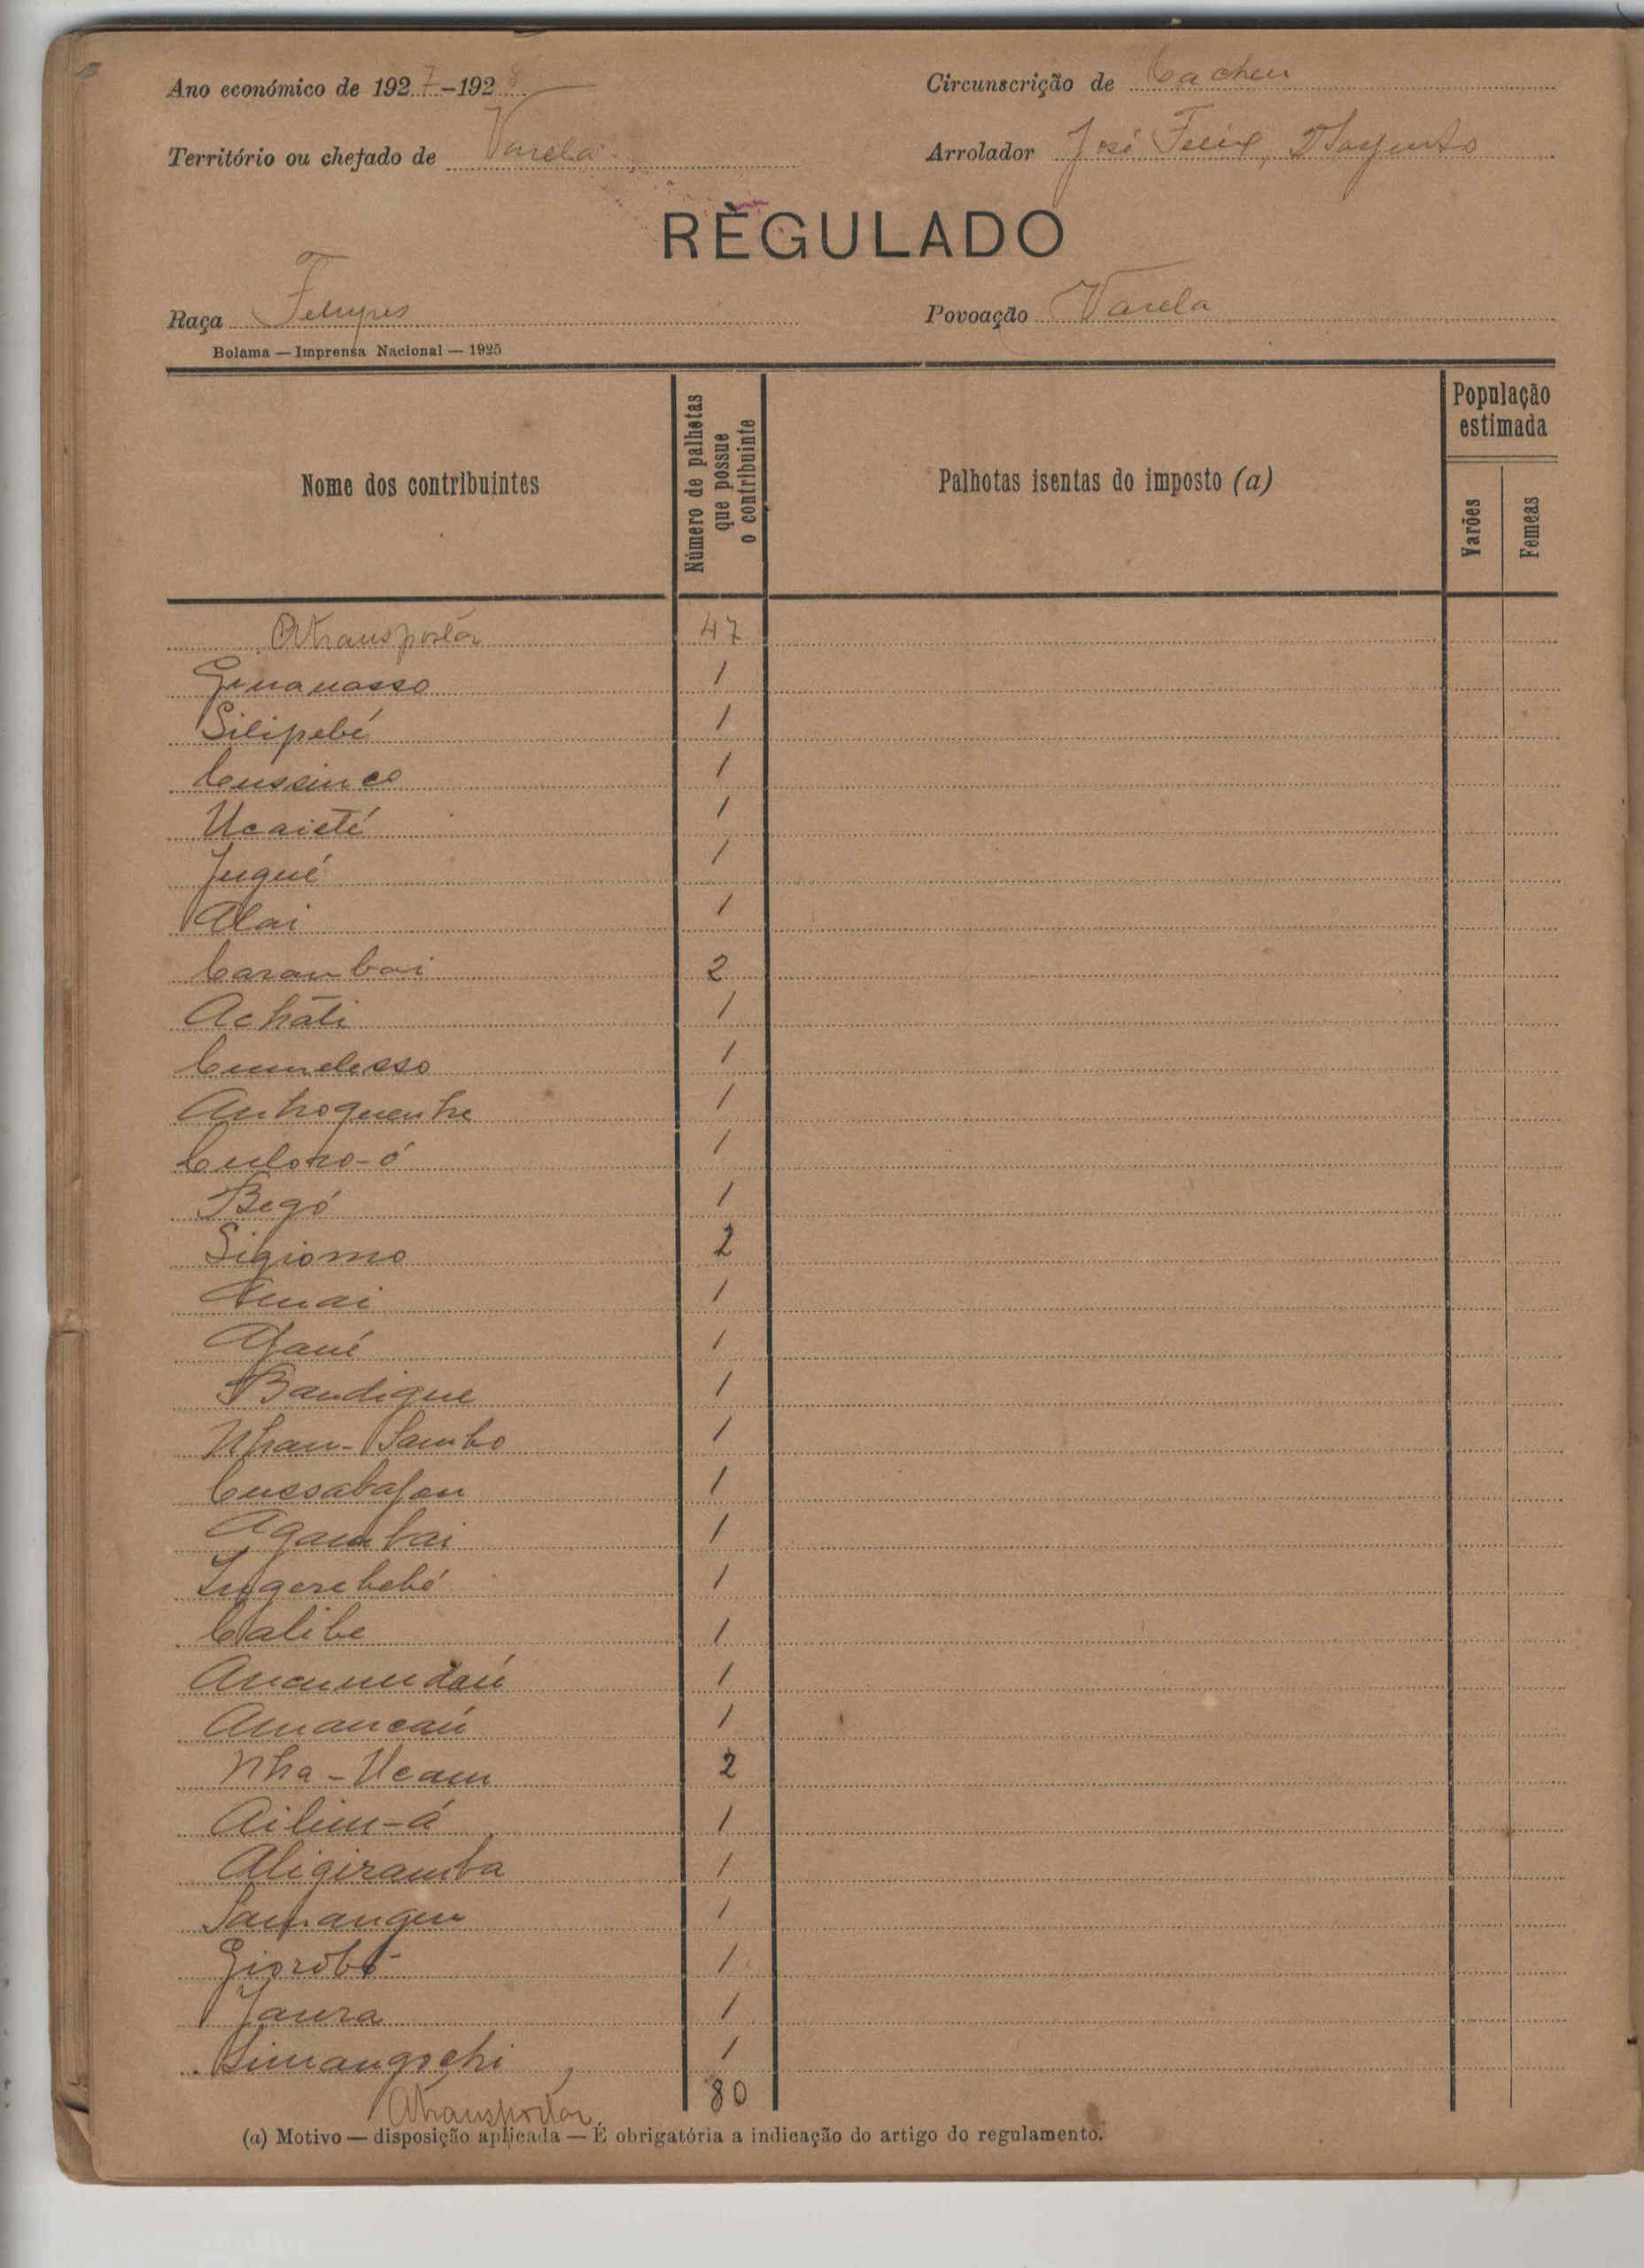 Ano económico de 1927-1928
Circunscrição de Cacheu
Território ou chefado de Varela
Arrolador José Felix, 2º Sargento
REGULADO
Raça Felupes
Povoação Varela
Bolama — Imprensa Nacional — 1925
Nome dos contribuintes
Número de palhotas que possue o contribuinte
Palhotas isentas do imposto (a)
População estimada
Varões
Femeas
A transportar 47
1
Silipebé 1
Cussinco 1
Ucaieté 1
Jugué 1
Alai 1
Carambai 2
Acháti 1
Cumelesso 1
Antroquenhe 1
Culoro-ó 1
Begó 1
Sigiomo 2
Amai 1
Afané 1
Bandigue 1
Nhan-Sambo 1
Cussabafon 1
Agambai 1
Lugerebebé 1
Calibe 1
1
Amancaú 1
Nha-Ucam 2
Ailim-á 1
Aligiramba 1
1
Giorobó 1
Jaura 1
Simangochi 1
A transportar 80
(a) Motivo — disposição aplicada — É obrigatória a indicação do artigo do regulamento.